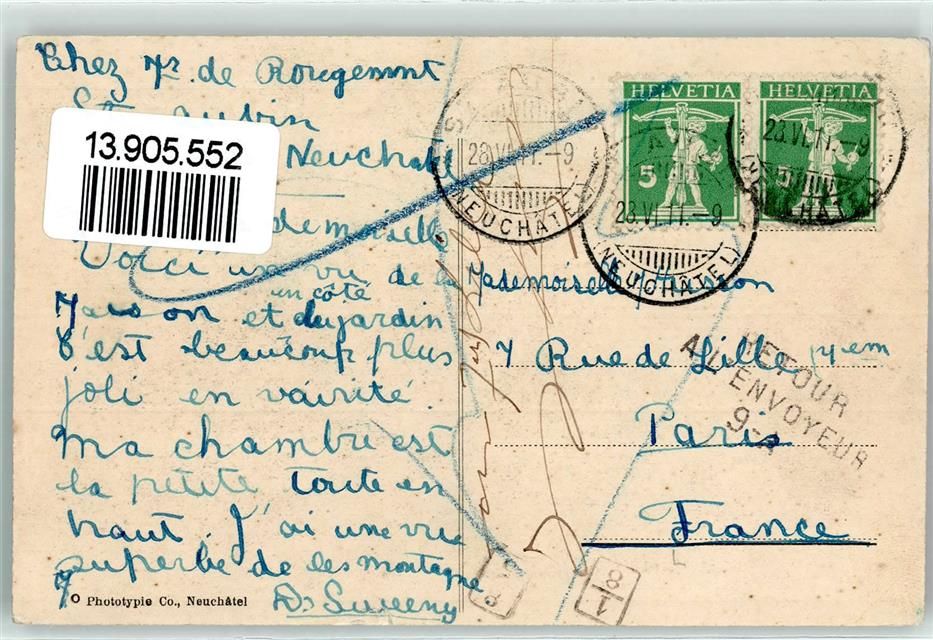 Chez Mr de Rougemont
St Aubin
13.905.552
Neuchatel
demoiselle
Voici un vu de la
un côté
Maison et du jardin
C'est beaucoup plus
joli en vairité.
Ma chambre est
la petite toute en
haut. J'ai une vue
superbe de les montagne
D. Sweeny
Phototypie Co., Neuchâtel
ST AUBIN
23.VI.11.-9
(NEUCHÂTEL)
HELVETIA
5
HELVETIA
5
23.VI.11.-9
(NEUCHÂTEL)
23.VI.11.-9
(NEUCHÂTEL)
Mademoiselle
7 Rue de Lille 14em
Paris
France
RETOUR
A L'ENVOYEUR
9-A
8
1